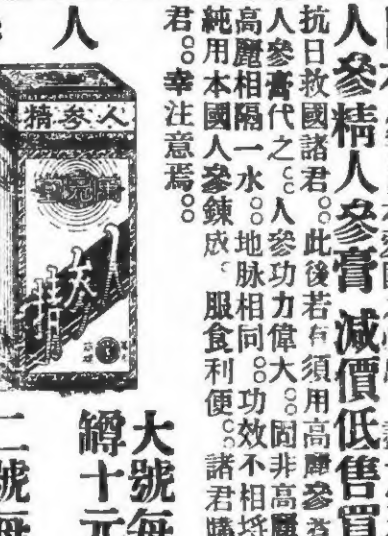 人參精人參膏減價低售買
抗日救國諸君。。此後若有須用高麗參
人參膏代之。。人參功力偉大。。固非高麗
高麗相隔一水。。地脉相同。。功效不相
純用本國人參鍊成。服食利便。。諸君購
君。。幸注意焉。。
人
人參精
人參精
大號每
罇十元
二號每